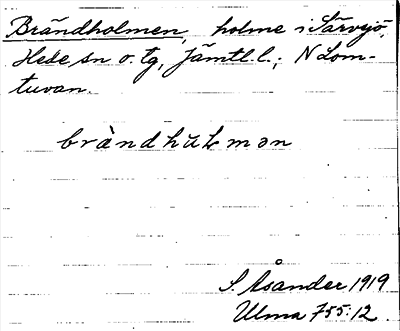 Brändholmen, holme i Särvsjö,
Hede sn o. tg, Jämtl. l.; N Lom-
tuvan.
bràndhùɫmən
S. Åsander 1919
Ulma 755:12.